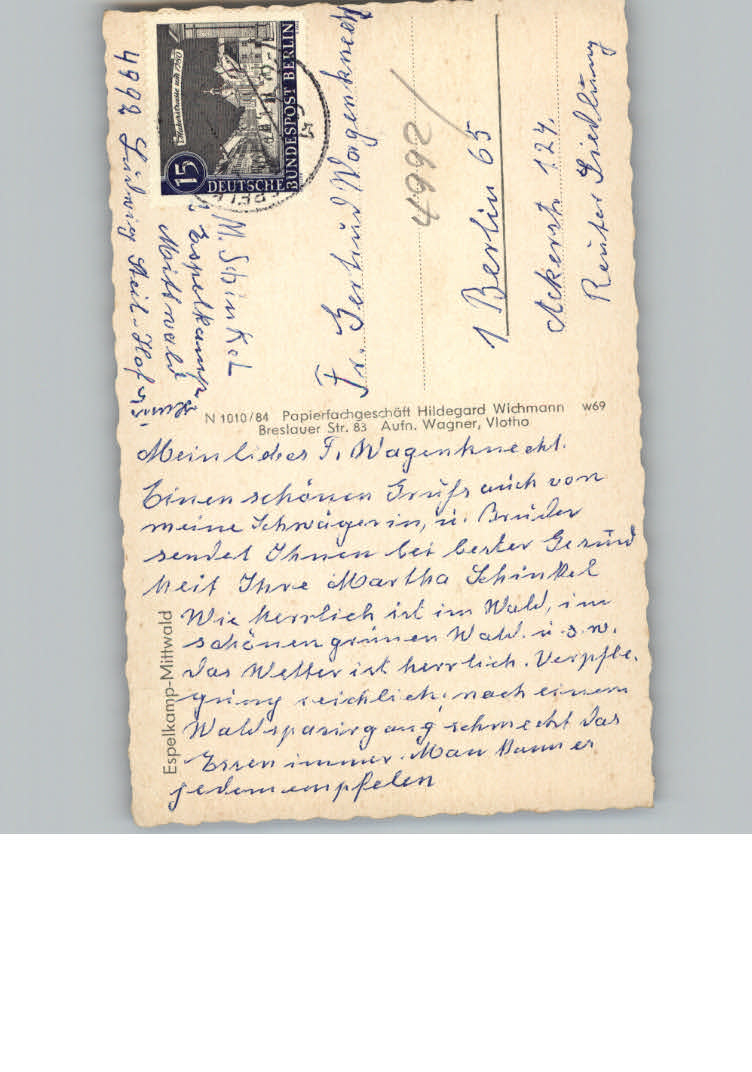 Meinliebes F. Wagenknecht.
Einen schönen Gruss auch von
meine Schwägerin, u. Bruder
sendet Ihnen bei bester Gesund
heit Ihre Martha Schinkel
Wie herrlich ist im Wald, im
schönen grünen Wald. u. s. w.
das Wetter ist herrlich. Verpfle-
gung reichlich, nach einem
Waldspazirgang schmeckt das
Essen immer. Man kann es
jedem empfelen
Espelkamp-Mittwald
N 1010/84 Papierfachgeschäft Hildegard Wichmann w69
Breslauer Str. 83 Aufn. Wagner, Vlotho
M. Schinkel
Espelkamp
Mittwald
4992 Ludwig Steil-Hof
15
DEUTSCHE
BUNDESPOST BERLIN
Fr. Gertrud Wagenknecht
4992
1 Berlin 65
Ackerstr. 124.
Reuter Siedlung